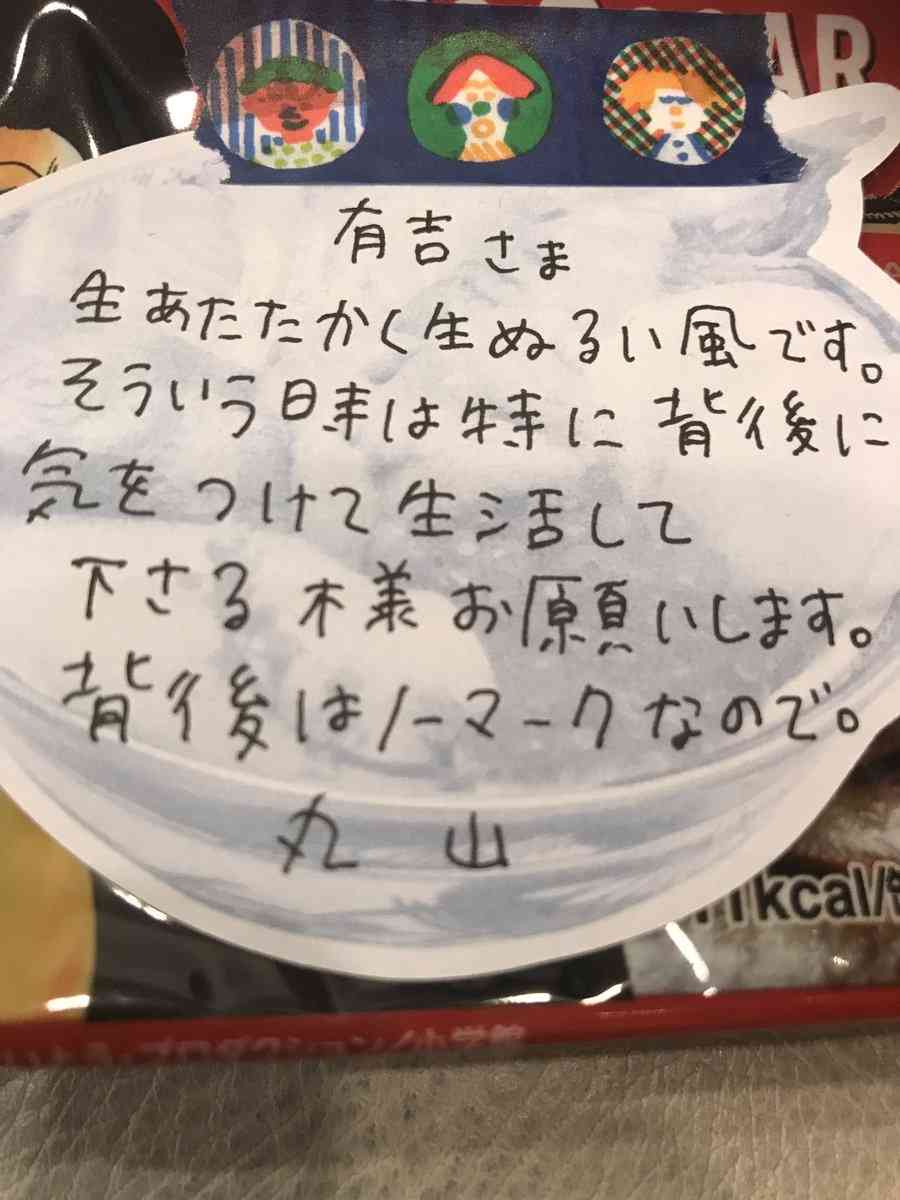 AR
有吉さま
生あたたかく生ぬるい風です。
そういう時は特に背後に
気をつけて生活して
下さる様お願いします。
背後はノーマークなので。
丸山
1kcal/
プロダクション/小学館